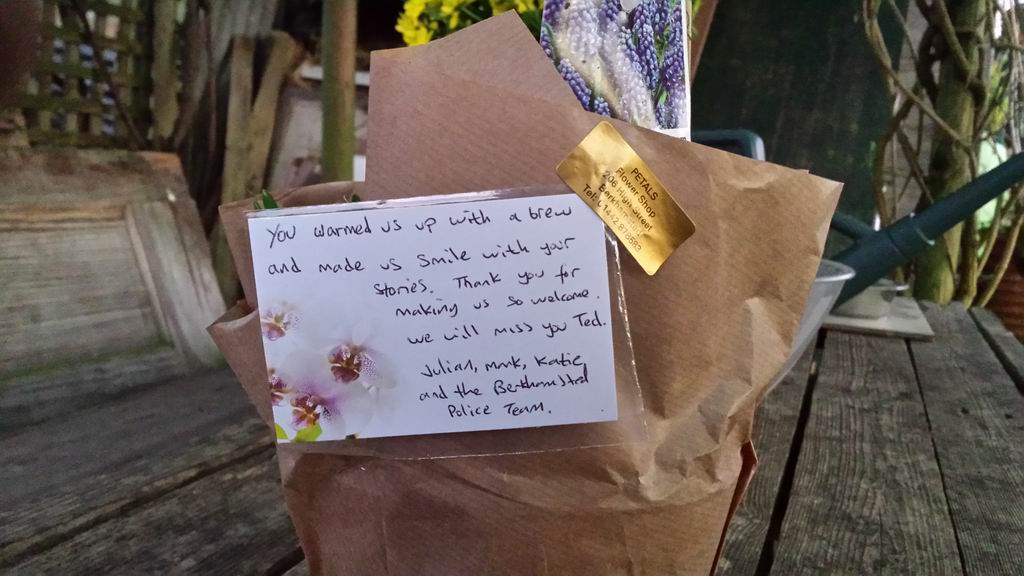 You warmed us up with a brew
and made us smile with your
stories. Thank you for
making us so welcome.
we will miss you Ted.
Julian, Mark, Katie
and the Berkhamsted
Police Team.
PETALS
Flower Shop
206 High Street
Tel: 01442